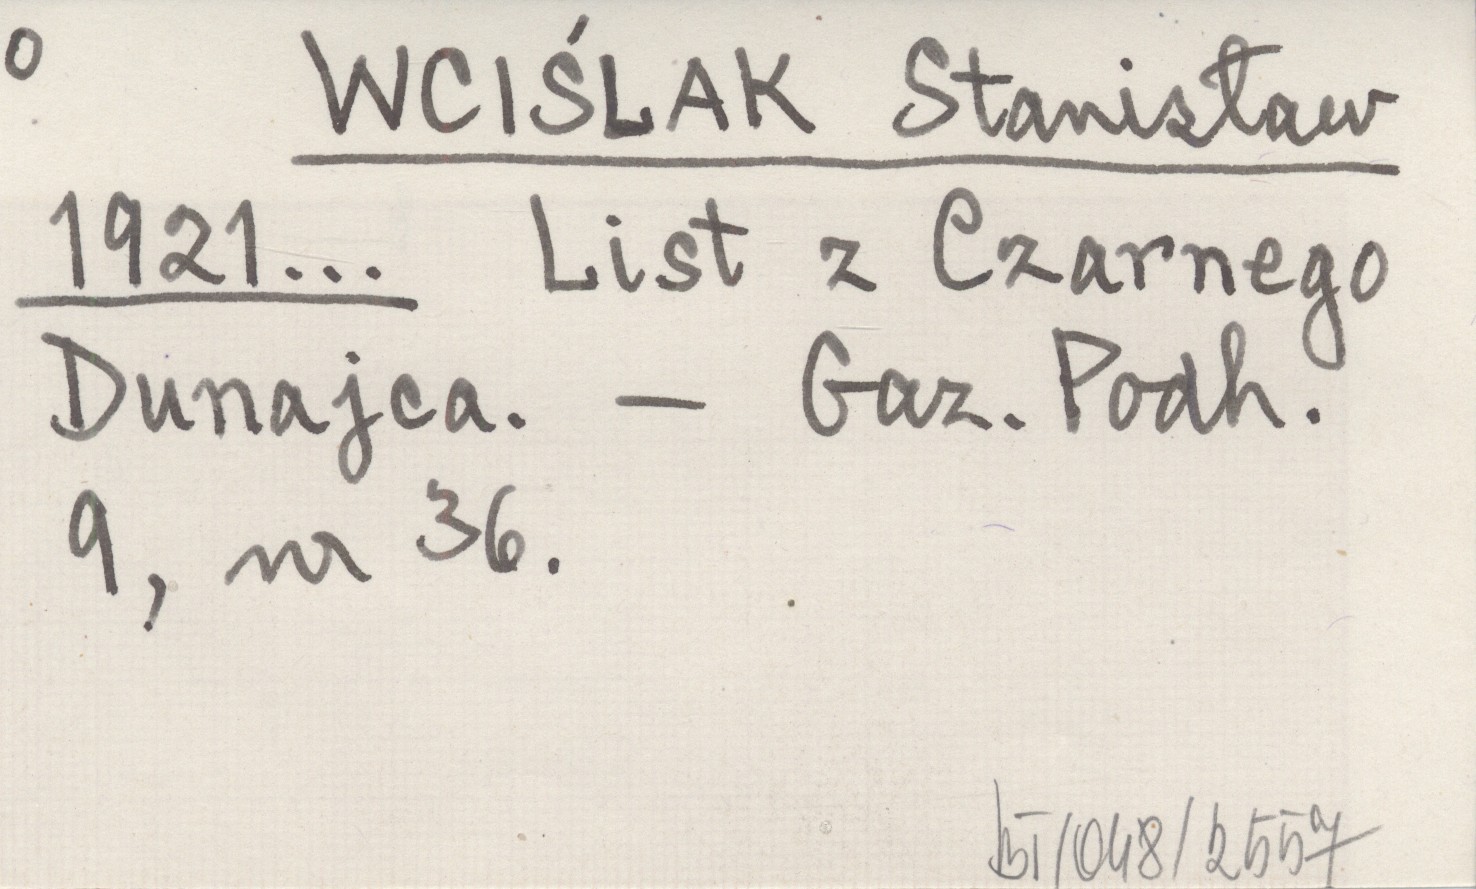 o WCIŚLAK Stanisław
1921... List z Czarnego
Dunajca. — Gaz. Podh.
9, nr 36.